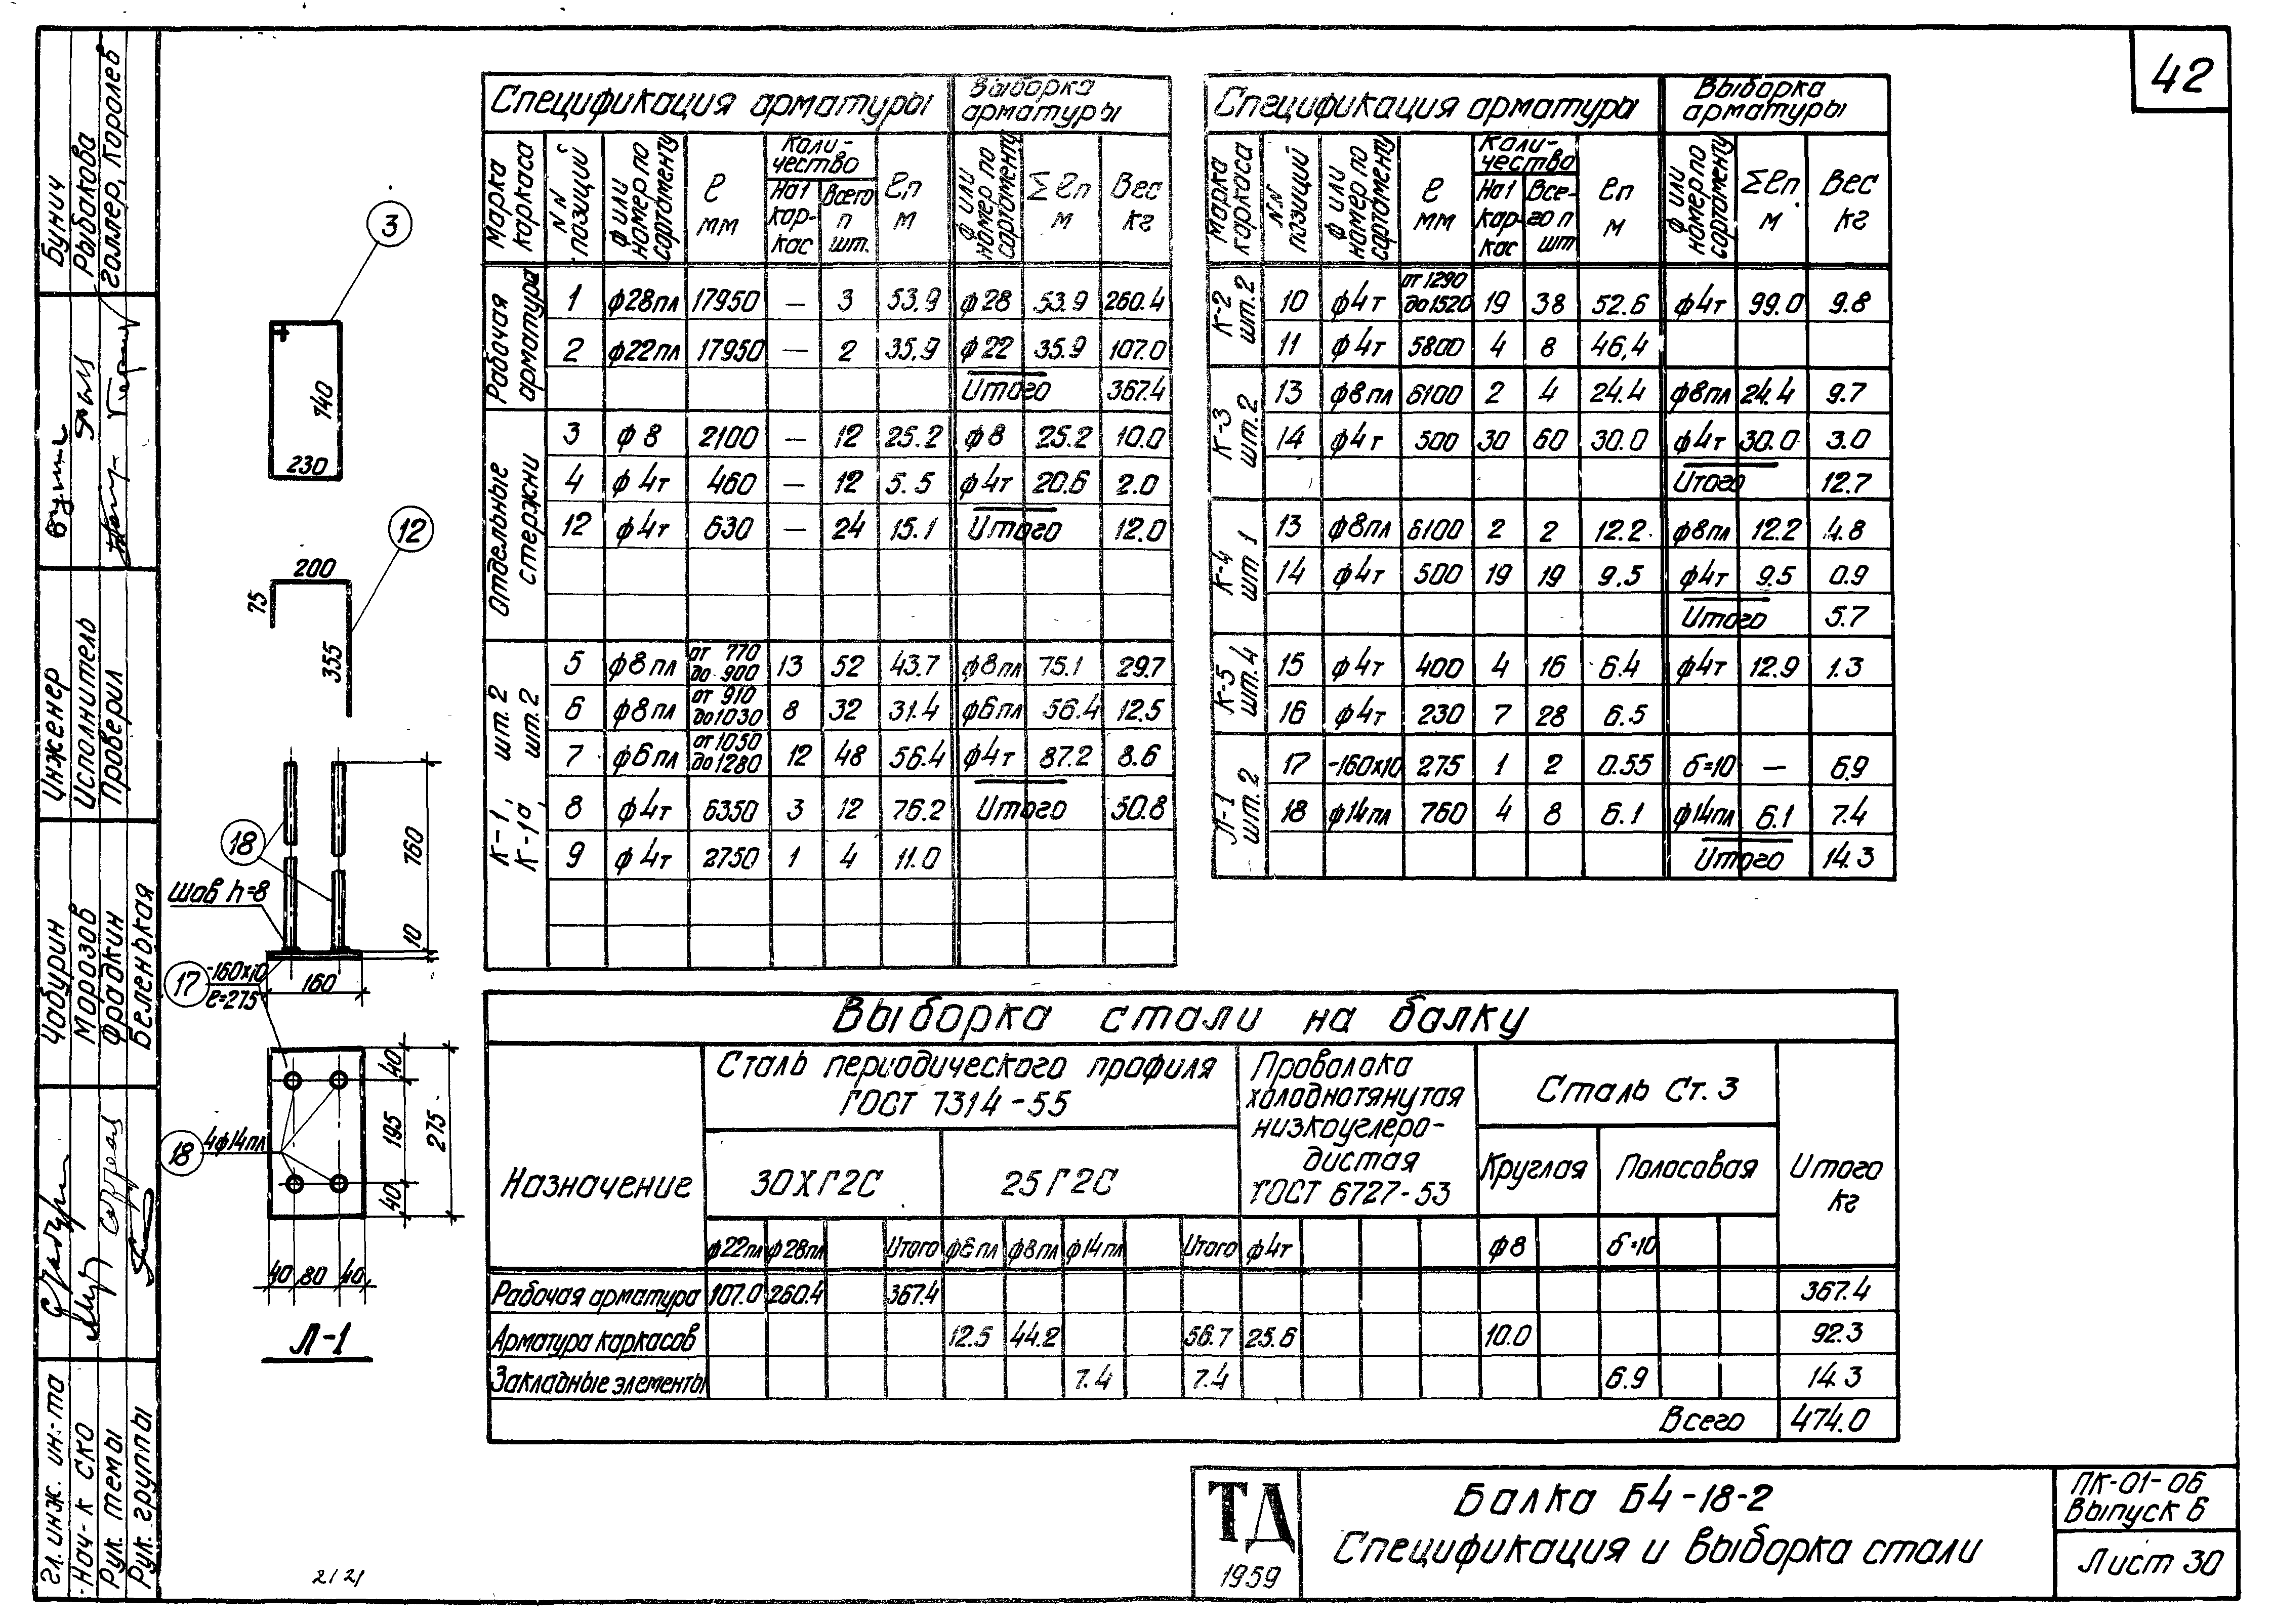 42
Спецификация арматуры
Выборка арматуры
Марка каркаса
NN позиций
ф или номер по сортаменту
ℓ мм
Коли-чество
На 1 кар-кас
Всего п шт.
ℓп м
ф или номер по сортаменту
Σℓп м
Вес кг
Рабочая арматура
1 ф28пл 17950 — 3 53.9 ф28 53.9 260.4
2 ф22пл 17950 — 2 35.9 ф22 35.9 107.0
Итого 367.4
Отдельные стержни
3 ф8 2100 — 12 25.2 ф8 25.2 10.0
4 ф4т 460 — 12 5.5 ф4т 20.6 2.0
12 ф4т 630 — 24 15.1 Итого 12.0
К-1, шт.2
К-1а, шт.2
5 ф8пл от 770 до 900 13 52 43.7 ф8пл 75.1 29.7
6 ф8пл от 910 до 1030 8 32 31.4 ф6пл 56.4 12.5
7 ф6пл от 1050 до 1280 12 48 56.4 ф4т 87.2 8.6
8 ф4т 6350 3 12 76.2 Итого 50.8
9 ф4т 2750 1 4 11.0
Спецификация арматуры
Выборка арматуры
Марка каркаса
N.N. позиций
ф или номер по сортаменту
ℓ мм
Коли-чество
На 1 кар-кас
Все-го п шт
ℓп м
ф или номер по сортаменту
Σℓп м
Вес кг
К-2 шт.2
10 ф4т от 1290 до 1520 19 38 52.6 ф4т 99.0 9.8
11 ф4т 5800 4 8 46,4
К-3 шт.2
13 ф8пл 6100 2 4 24.4 ф8пл 24.4 9.7
14 ф4т 500 30 60 30.0 ф4т 30.0 3.0
Итого 12.7
К-4 шт 1
13 ф8пл 6100 2 2 12.2 ф8пл 12.2 4.8
14 ф4т 500 19 19 9.5 ф4т 9.5 0.9
Итого 5.7
К-5 шт.4
15 ф4т 400 4 16 6.4 ф4т 12.9 1.3
16 ф4т 230 7 28 6.5
Л-1 шт.2
17 -160х10 275 1 2 0.55 б=10 — 6.9
18 ф14пл 760 4 8 6.1 ф14пл 6.1 7.4
Итого 14.3
Выборка стали на балку
Назначение
Сталь периодического профиля
ГОСТ 7314-55
30ХГ2С
25Г2С
Проволока
холоднотянутая
низкоуглеро-
дистая
ГОСТ 6727-53
Сталь Ст. 3
Круглая
Полосовая
Итого
кг
ф22пл ф28пл Итого ф6пл ф8пл ф14пл Итого ф4т ф8 б=10
Рабочая арматура 107.0 260.4 367.4 367.4
Арматура каркасов 12.5 44.2 56.7 25.6 10.0 92.3
Закладные элементы 7.4 7.4 6.9 14.3
Всего 474.0
3
740
230
12
200
75
355
18
760
Шов h=8
10
17
-160х10
ℓ=275
160
18
4ф14пл
40
195
40
275
40 80 40
Л-1
Бунич
Рыбакова
Галлер, Королев
Инженер
Исполнитель
Проверил
Чабурин
Морозов
Фрадкин
Беленькая
Гл. инж. ин.-та
Нач-к СКО
Рук. темы
Рук. группы
ТД
1959
Балка Б4-18-2
Спецификация и выборка стали
ПК-01-06
Выпуск 6
Лист 30